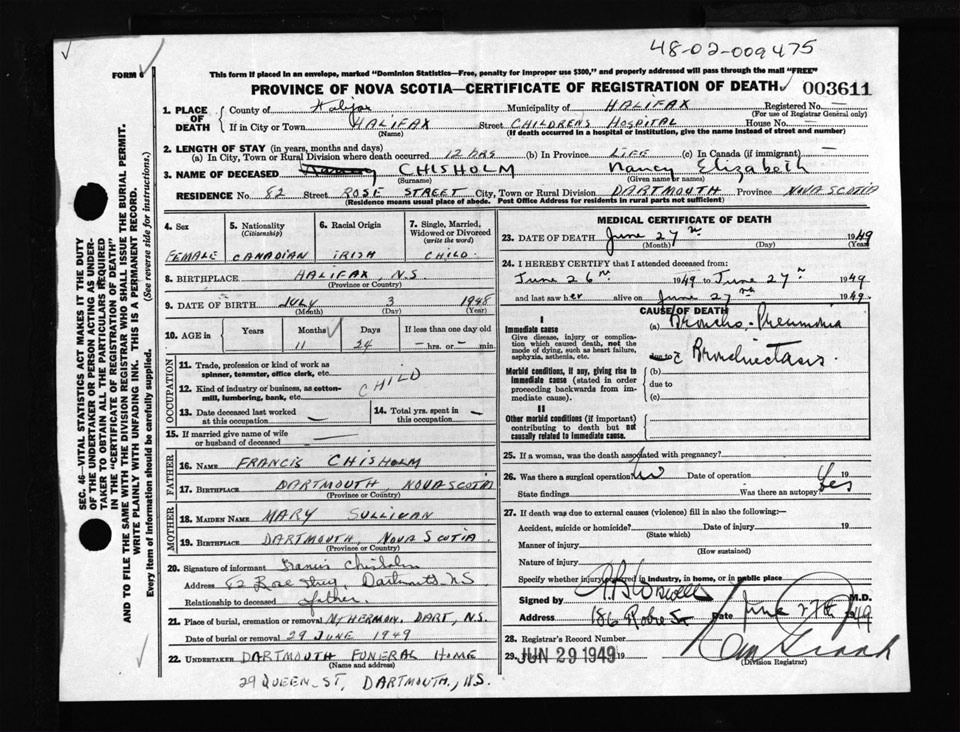 48-02-009475
FORM 6
This form if placed in an envelope, marked "Dominion Statistics—Free, penalty for improper use $300," and properly addressed will pass through the mail "FREE"
PROVINCE OF NOVA SCOTIA—CERTIFICATE OF REGISTRATION OF DEATH 003611
SEC. 46—VITAL STATISTICS ACT MAKES IT THE DUTY
OF THE UNDERTAKER OR PERSON ACTING AS UNDER-
TAKER TO OBTAIN ALL THE PARTICULARS REQUIRED
IN THE "CERTIFICATE OF REGISTRATION OF DEATH"
AND TO FILE THE SAME WITH THE DIVISION REGISTRAR WHO SHALL ISSUE THE BURIAL PERMIT.
WRITE PLAINLY WITH UNFADING INK. THIS IS A PERMANENT RECORD.
Every item of information should be carefully supplied. (See reverse side for instructions.)
1. PLACE OF DEATH
County of Halifax Municipality of HALIFAX Registered No. —
(For use of Registrar General only)
If in City or Town HALIFAX Street CHILDRENS HOSPITAL House No. —
(Name) (If death occurred in a hospital or institution, give the name instead of street and number)
2. LENGTH OF STAY (in years, months and days)
(a) In City, Town or Rural Division where death occurred 12 hrs (b) In Province LIFE (c) In Canada (if immigrant) —
3. NAME OF DECEASED CHISHOLM Nancy Elizabeth
(Surname) (Given name or names)
RESIDENCE No 82 Street ROSE STREET City, Town or Rural Division DARTMOUTH Province NOVA SCOTIA
(Residence means usual place of abode. Post Office Address for residents in rural parts not sufficient)
4. Sex 5. Nationality (Citizenship) 6. Racial Origin 7. Single, Married, Widowed or Divorced (write the word)
FEMALE CANADIAN IRISH CHILD
8. BIRTHPLACE HALIFAX, N.S.
(Province or Country)
9. DATE OF BIRTH JULY 3 1948
(Month) (Day) (Year)
10. AGE in Years Months Days If less than one day old
11 24 — hrs. or — min.
OCCUPATION
11. Trade, profession or kind of work as
spinner, teamster, office clerk, etc.
12. Kind of industry or business, as cotton-
mill, lumbering, bank, etc.
CHILD
13. Date deceased last worked
at this occupation —
14. Total yrs. spent in
this occupation —
15. If married give name of wife
or husband of deceased —
FATHER
16. NAME FRANCIS CHISHOLM
17. BIRTHPLACE DARTMOUTH, NOVA SCOTIA
(Province or Country)
MOTHER
18. MAIDEN NAME MARY SULLIVAN
19. BIRTHPLACE DARTMOUTH, NOVA SCOTIA.
(Province or Country)
20. Signature of informant Francis Chisholm
Address 82 Dartmouth NS
Relationship to deceased father.
21. Place of burial, cremation or removal MT HERMON, DART, N.S.
Date of burial or removal 29 JUNE 1949
22. UNDERTAKER DARTMOUTH FUNERAL HOME
(Name and address)
29 QUEEN ST, DARTMOUTH, N.S.
MEDICAL CERTIFICATE OF DEATH
23. DATE OF DEATH June 27th 1949
(Month) (Day) (Year)
24. I HEREBY CERTIFY that I attended deceased from:
June 26th 1949 to June 27th 1949
and last saw her alive on June 27th 1949
CAUSE OF DEATH
I
Immediate cause
Give disease, injury or complica-
tion which caused death, not the
mode of dying, such as heart failure,
asphyxia, asthenia, etc.
(a) Broncho-Pneumonia
due to Bronchiectasis.
Morbid conditions, if any, giving rise to
immediate cause (stated in order
proceeding backwards from im-
mediate cause).
(b)
due to
(c)
II
Other morbid conditions (if important)
contributing to death but not
causally related to immediate cause.
25. If a woman, was the death associated with pregnancy?
26. Was there a surgical operation Date of operation 19
State findings Was there an autopsy? Yes
27. If death was due to external causes (violence) fill in also the following:—
Accident, suicide or homicide? Date of injury 19
(State which)
Manner of injury
(How sustained)
Nature of injury
Specify whether injury occurred in industry, in home, or in public place
Signed by M.D.
Address 186 Robie St Date June 27th 1949
28. Registrar's Record Number
29. JUN 29 1949 19
(Division Registrar)